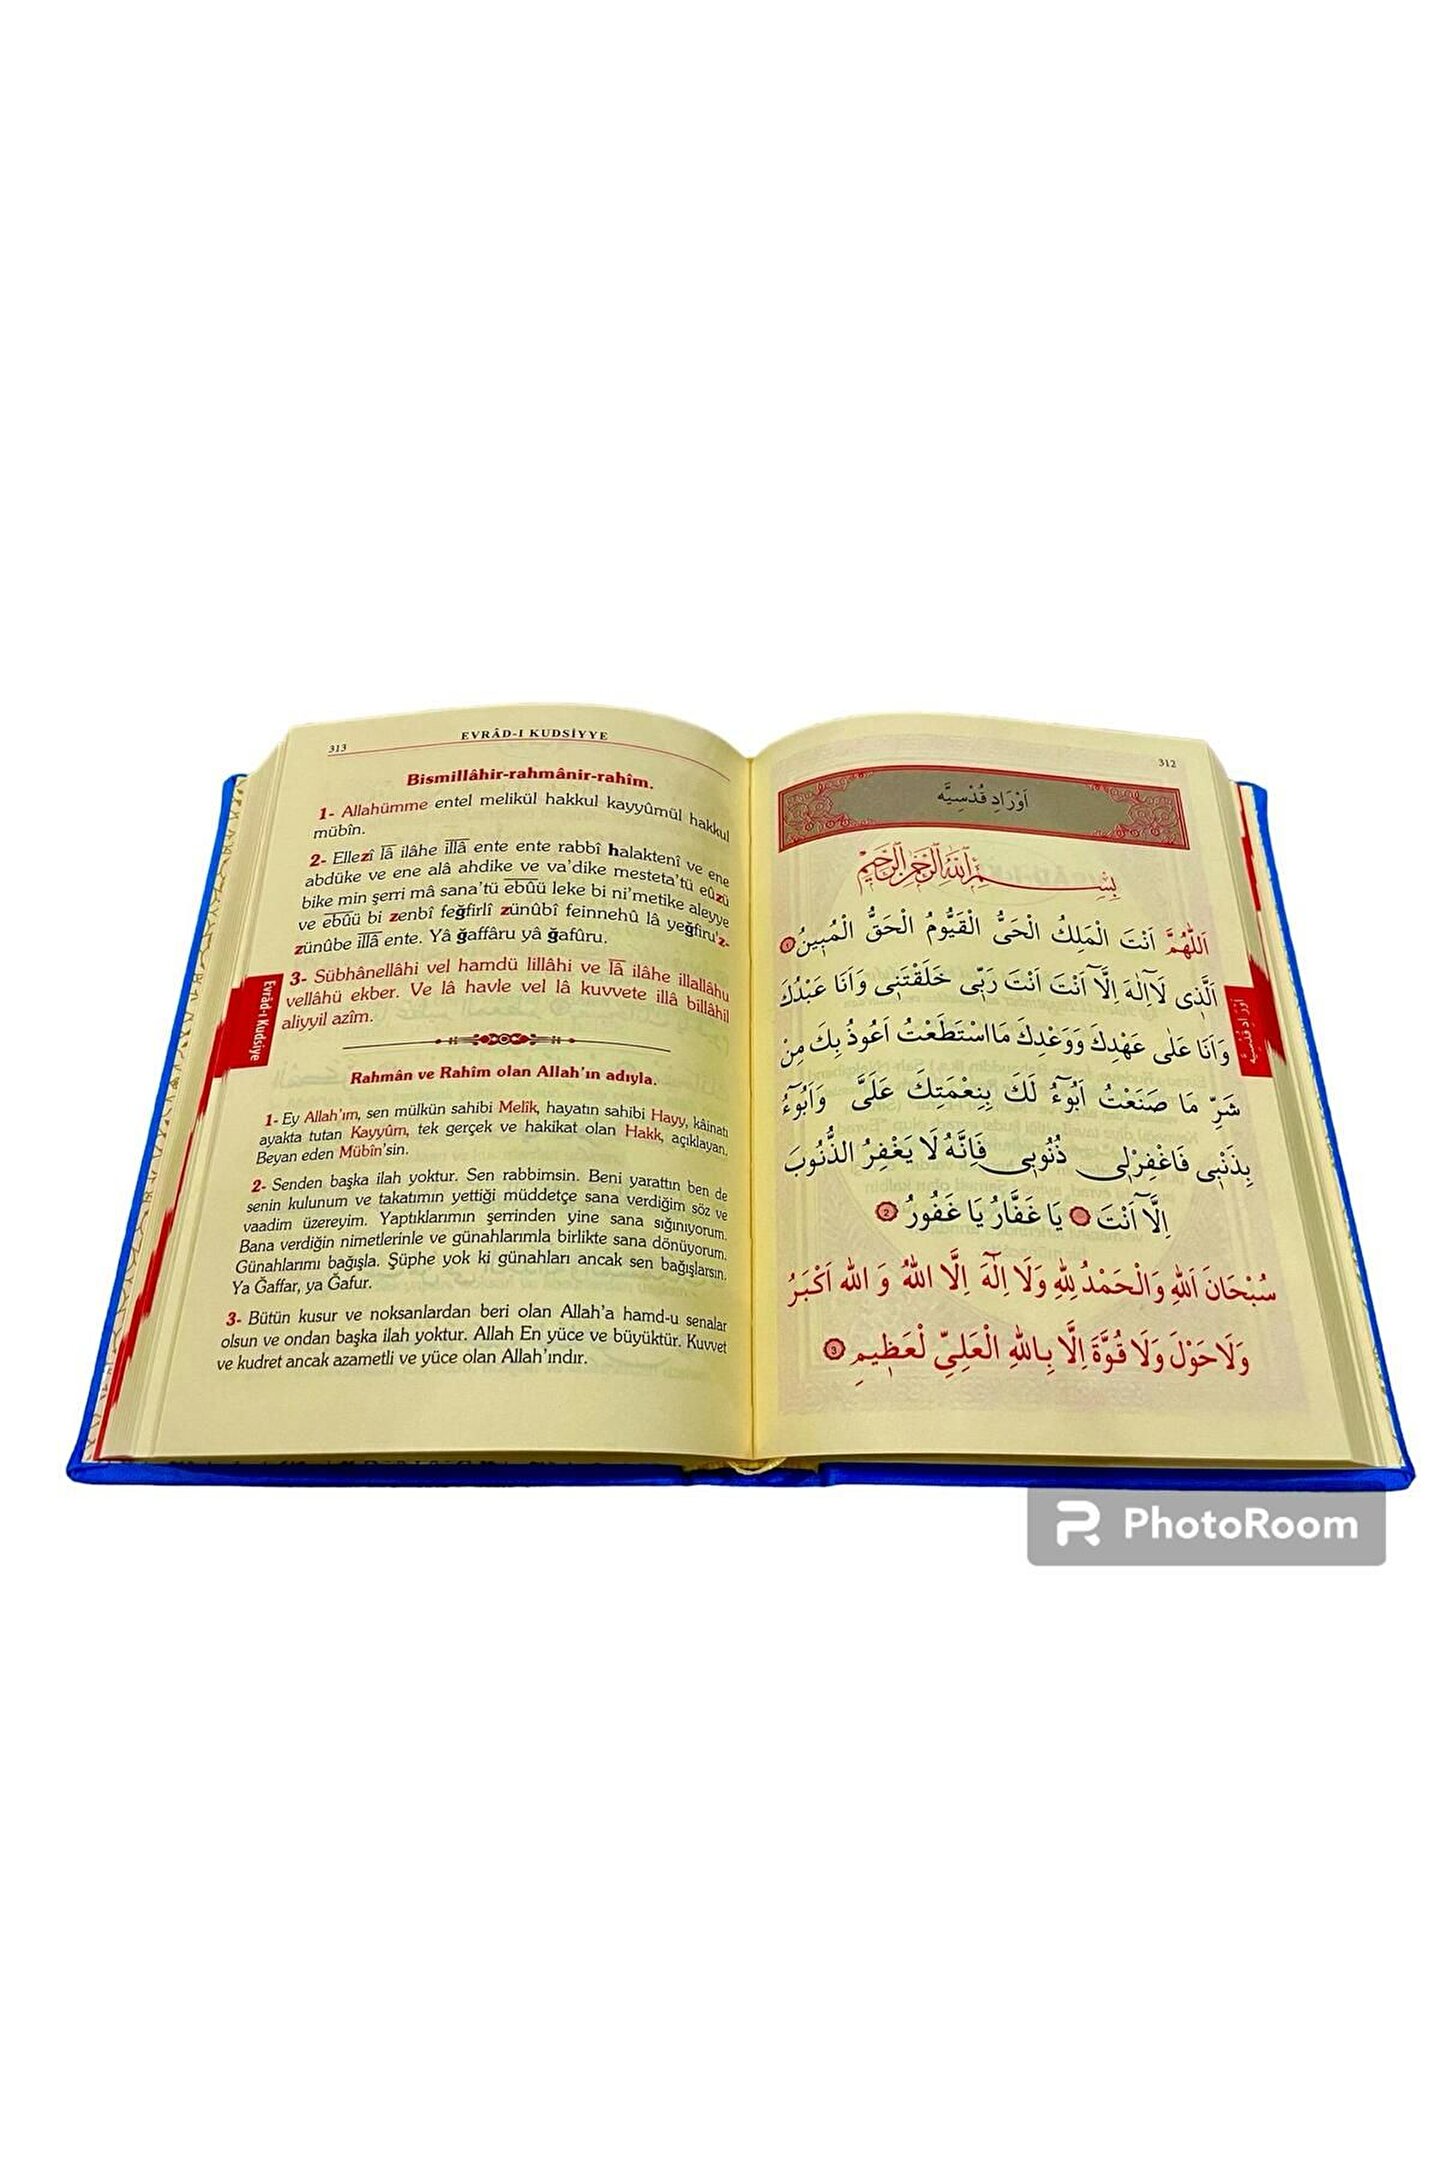 312
اَوْرَادِ قُدْسِيَّه
بِسْمِ اللّٰهِ الرَّحْمٰنِ الرَّحِيمِ
اَللّٰهُمَّ اَنْتَ الْمَلِكُ الْحَىُّ الْقَيُّومُ الْحَقُّ الْمُبٖينُ ١
اَلَّذٖى لَٓا اِلٰهَ اِلَّٓا اَنْتَ اَنْتَ رَبّٖى خَلَقْتَنٖى وَاَنَا عَبْدُكَ
وَاَنَا عَلٰى عَهْدِكَ وَوَعْدِكَ مَااسْتَطَعْتُ اَعُوذُ بِكَ مِنْ
شَرِّ مَا صَنَعْتُ اَبُوٓءُ لَكَ بِنِعْمَتِكَ عَلَىَّ وَاَبُوٓءُ
بِذَنْبٖى فَاغْفِرْلٖى ذُنُوبٖى فَاِنَّهُ لَا يَغْفِرُ الذُّنُوبَ
اِلَّٓا اَنْتَ يَا غَفَّارُ يَا غَفُورُ 2
سُبْحَانَ اَللّٰهِ وَالْحَمْدُ لِلّٰهِ وَلَا اِلٰهَ اِلَّا اللّٰهُ وَ اللّٰه اَكْبَرُ
وَلَا حَوْلَ وَلَا قُوَّةَ اِلَّا بِاللّٰهِ الْعَلِىِّ لْعَظٖيمِ 3
اَوْرَادِ قُدْسِيَّه
313
EVRÂD-I KUDSİYYE
Bismillâhir-rahmânir-rahîm.
1- Allahümme entel melikül hakkul kayyûmül hakkul
mübîn.
2- Ellezî lâ ilâhe illâ ente ente rabbî halaktenî ve ene
abdüke ve ene alâ ahdike ve va'dike mesteta'tü eûzü
bike min şerri mâ sana'tü ebûü leke bi ni'metike aleyye
ve ebûü bi zenbî feğfirlî zünûbî feinnehû lâ yeğfiru'z-
zünûbe illâ ente. Yâ ğaffâru yâ ğafûru.
3- Sübhânellâhi vel hamdü lillâhi ve lâ ilâhe illallâhu
vellâhü ekber. Ve lâ havle vel lâ kuvvete illâ billâhil
aliyyil azîm.
Rahmân ve Rahîm olan Allah'ın adıyla.
1- Ey Allah'ım, sen mülkün sahibi Melîk, hayatın sahibi Hayy, kâinatı
ayakta tutan Kayyûm, tek gerçek ve hakikat olan Hakk, açıklayan,
Beyan eden Mübîn'sin.
2- Senden başka ilah yoktur. Sen rabbimsin. Beni yarattın ben de
senin kulunum ve takatımın yettiği müddetçe sana verdiğim söz ve
vaadim üzereyim. Yaptıklarımın şerrinden yine sana sığınıyorum.
Bana verdiğin nimetlerinle ve günahlarımla birlikte sana dönüyorum.
Günahlarımı bağışla. Şüphe yok ki günahları ancak sen bağışlarsın.
Ya Ğaffar, ya Ğafur.
3- Bütün kusur ve noksanlardan beri olan Allah'a hamd-u senalar
olsun ve ondan başka ilah yoktur. Allah En yüce ve büyüktür. Kuvvet
ve kudret ancak azametli ve yüce olan Allah'ındır.
Evrâd-ı Kudsiye
PhotoRoom